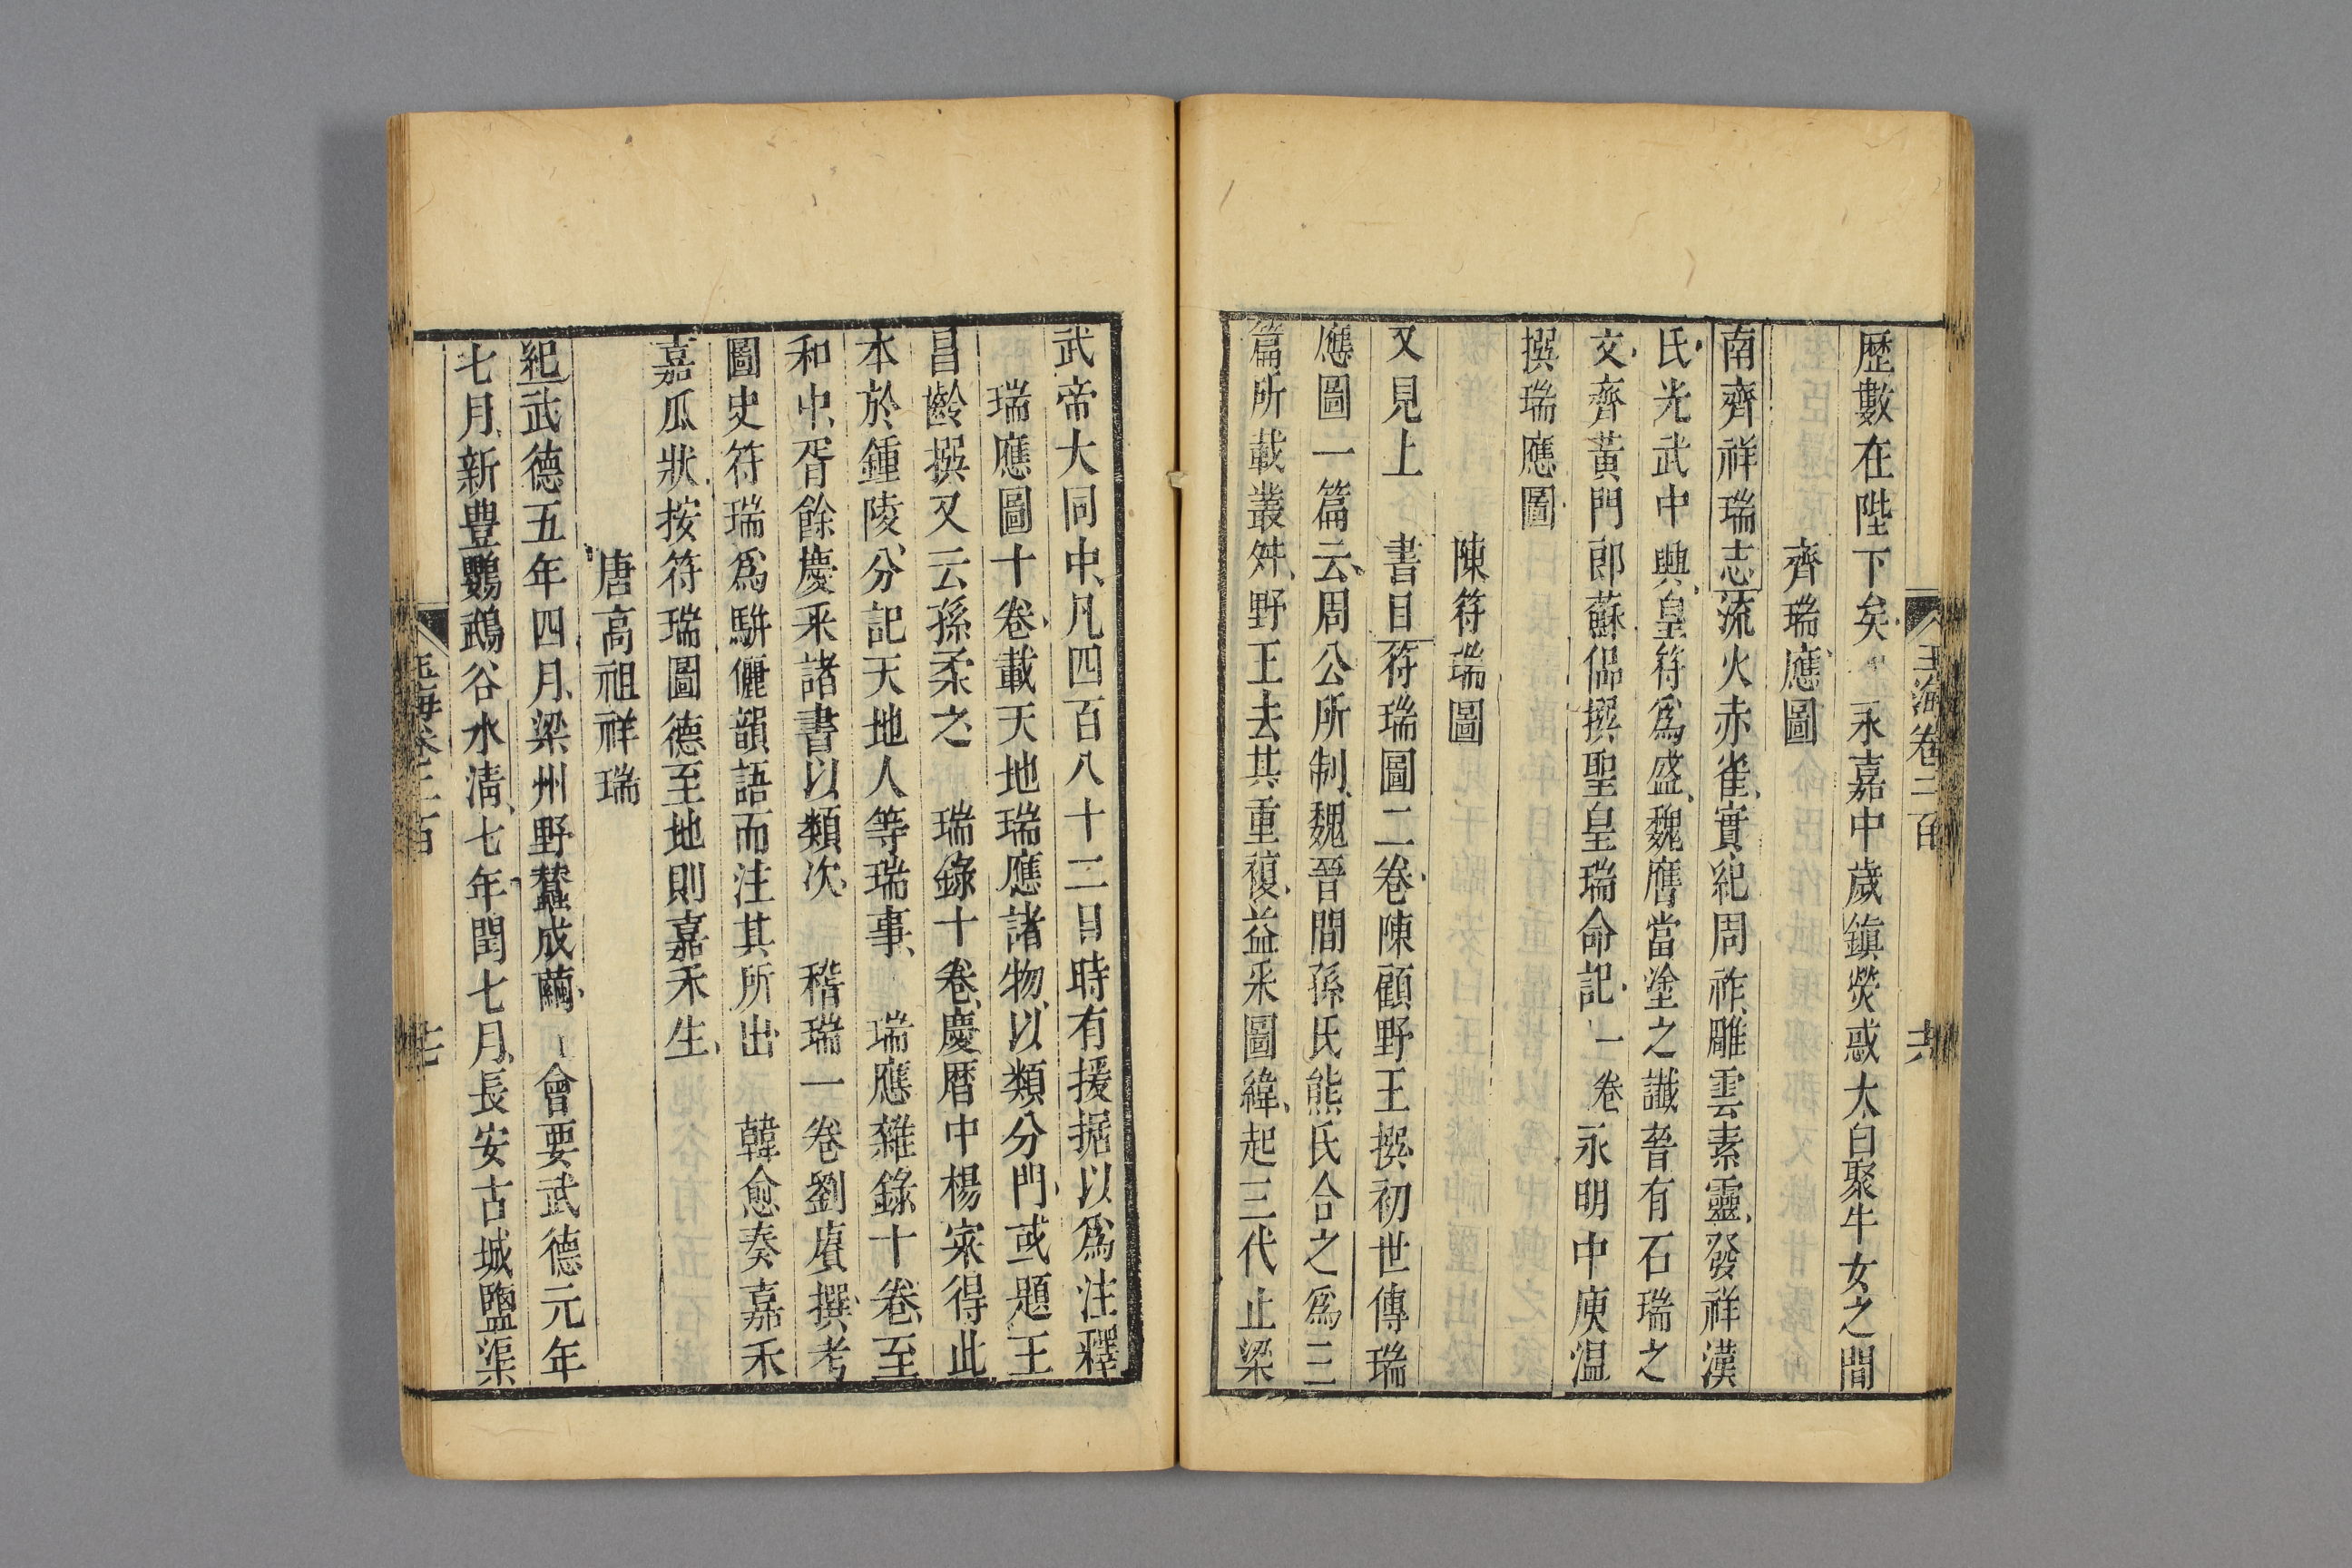 玉海卷二百
歷數在陛下矣 永嘉中歲鎮熒惑太白聚牛女之間
齊瑞應圖
南齊祥瑞志流火赤雀實紀周祚雕雲素靈發祥漢
氏光武中興皇符爲盛魏膺當塗之讖晉有石瑞之
文齊黃門郎蘇偘撰聖皇瑞命記一卷永明中庾温
撰瑞應圖
陳符瑞圖
又見上 書目符瑞圖二卷陳顧野王撰初世傳瑞
應圖一篇云周公所制魏晉間孫氏熊氏合之爲三
篇所載叢舛野王去其重複益采圖緯起三代止梁
武帝大同中凡四百八十二目時有援据以爲注釋
瑞應圖十卷載天地瑞應諸物以類分門或題王
昌齡撰又云孫柔之 瑞錄十卷慶曆中楊寀得此
本於鍾陵分記天地人等瑞事 瑞應雜錄十卷至
和中胥餘慶采諸書以類次 稽瑞一卷劉賡撰考
圖史符瑞爲駢儷韻語而注其所出 韓愈奏嘉禾
嘉瓜狀按符瑞圖德至地則嘉禾生
唐高祖祥瑞
紀武德五年四月梁州野蠶成繭 會要武德元年
七月新豊鸚鵡谷水清七年七年閏七月長安古城鹽渠
玉海卷二百